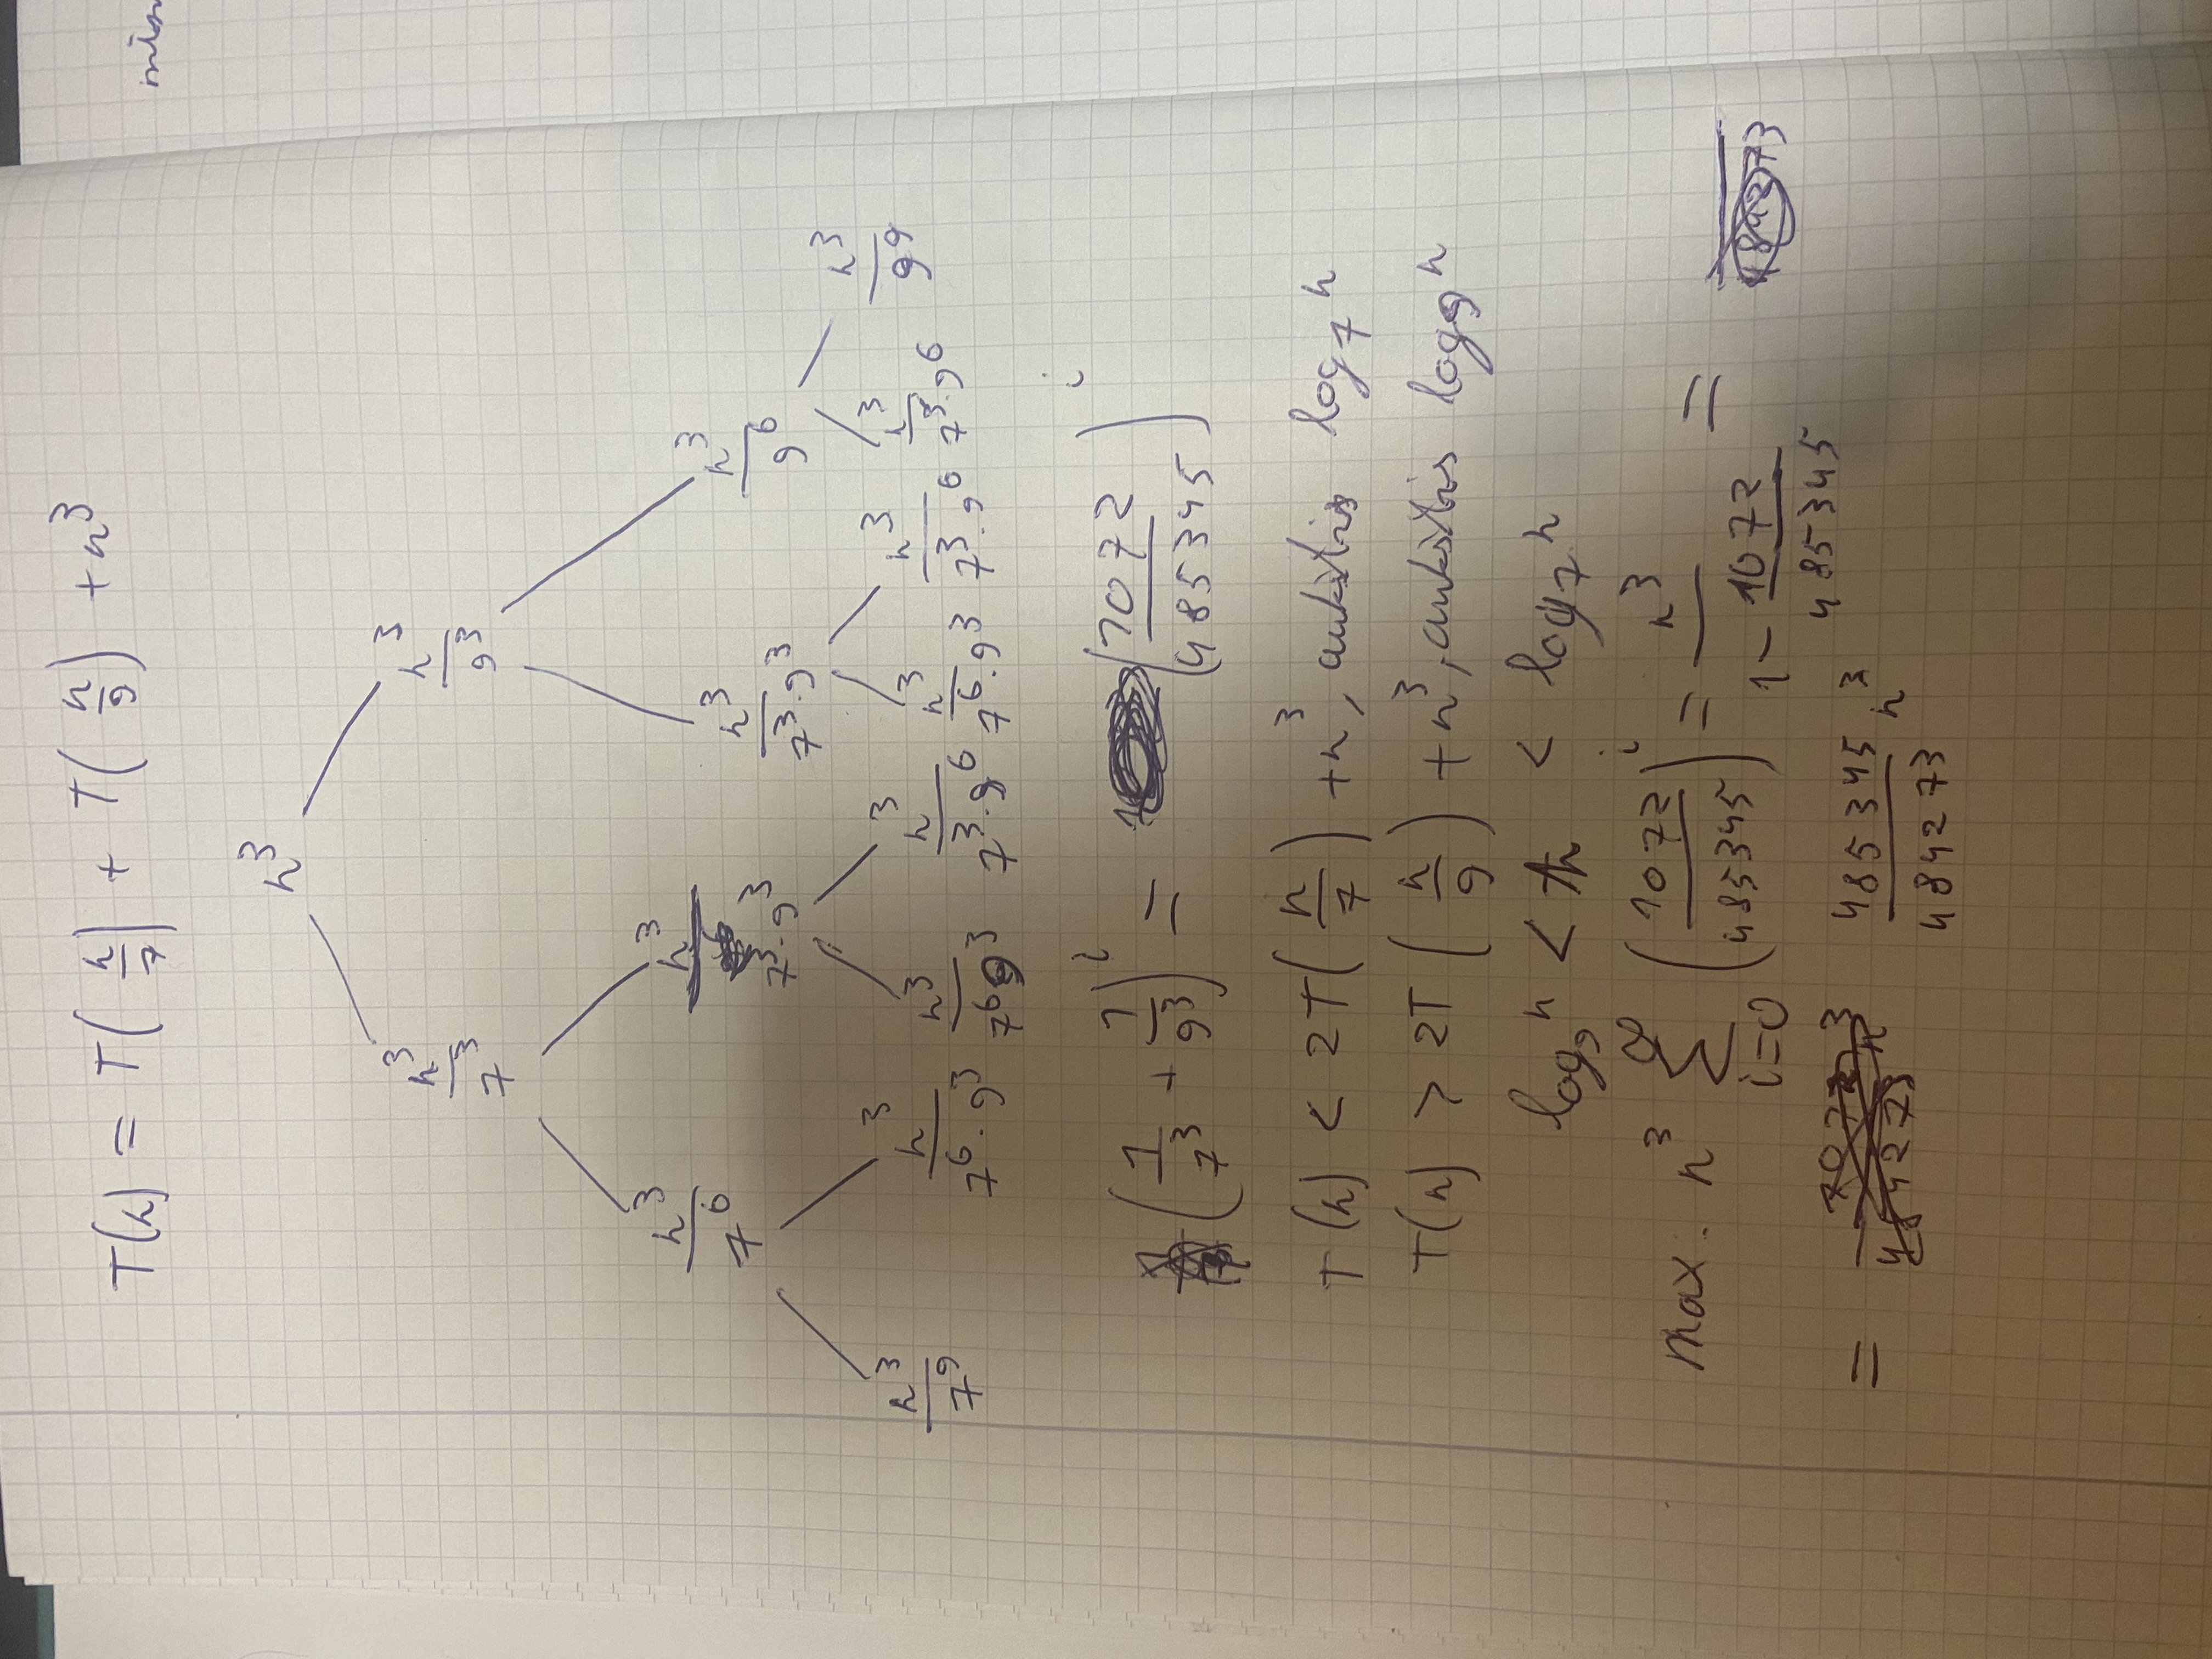 T(n) = T(n/7) + T(n/9) + n³
n³
n³/7³ n³/9³
n³/7⁶ n³/7³·9³ n³/7³·9³ n³/9⁶
n³/7⁹ n³/7⁶·9³ n³/7⁶9³ n³/7³·9⁶ n³/7⁶·9³ n³/7³·9⁶ n³/7³·9⁶ n³/9⁹
(1/7³ + 1/9³)ⁱ = (1072/485345)ⁱ
T(n) < 2T(n/7) + n³, aukštis log₇n
T(n) > 2T(n/9) + n³, aukštis log₉n
log₉n < h < log₇n
max. n³ ∞∑i=0 (1072/485345)ⁱ = n³/(1 - 1072/485345) =
= 485345/484273 n³